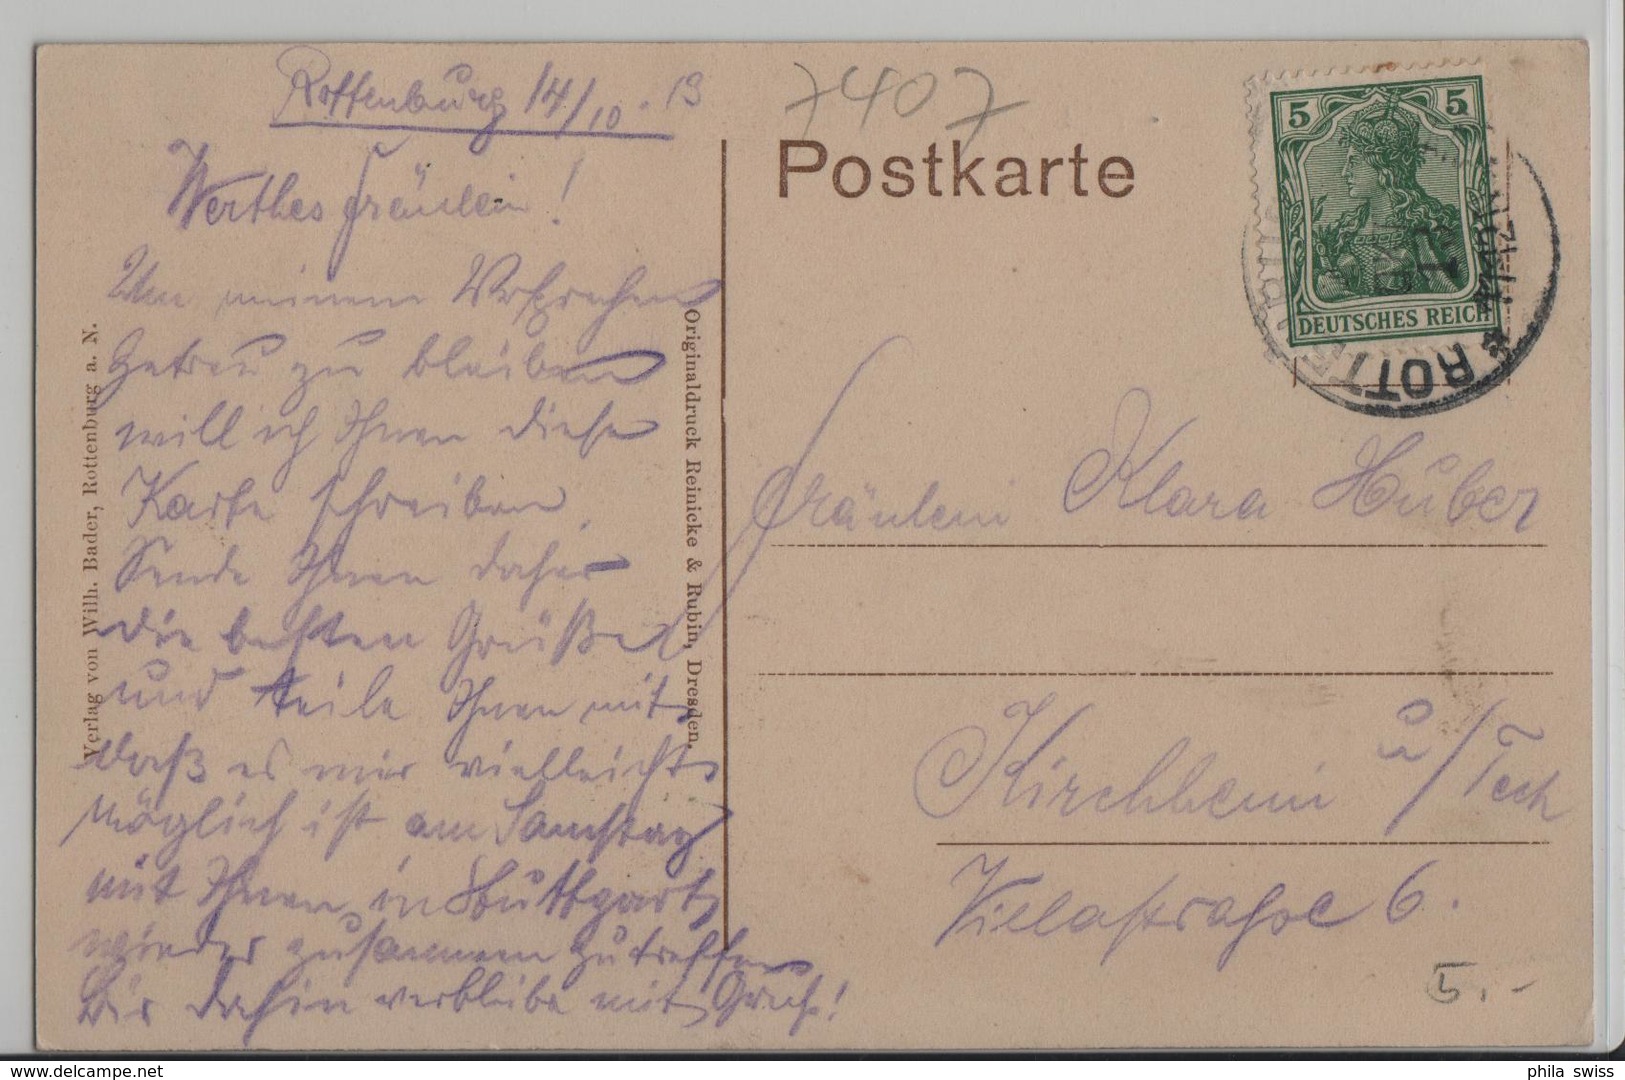 Rottenburg 14/10. 13
7407
Postkarte
Werthes Fräulein!
Um meinem Versprechen
getreu zu bleiben
will ich Ihnen diese
Karte schreiben.
Sende Ihnen daher
die besten Grüße
und teile Ihnen mit
daß es mir vielleicht
möglich ist am Samstag
mit Ihnen in Stuttgart
wieder zusammen zu treffen
Bis dahin verbleibe mit Gruß!
Verlag von Wilh. Bader, Rottenburg a. N.
Originaldruck Reinicke & Rubin, Dresden.
5 5
DEUTSCHES REICH
ROTTE
Fräulein Klara Huber
Kirchheim u/Teck
Villastrasse 6.
5.-
delcampe.net
phila swiss